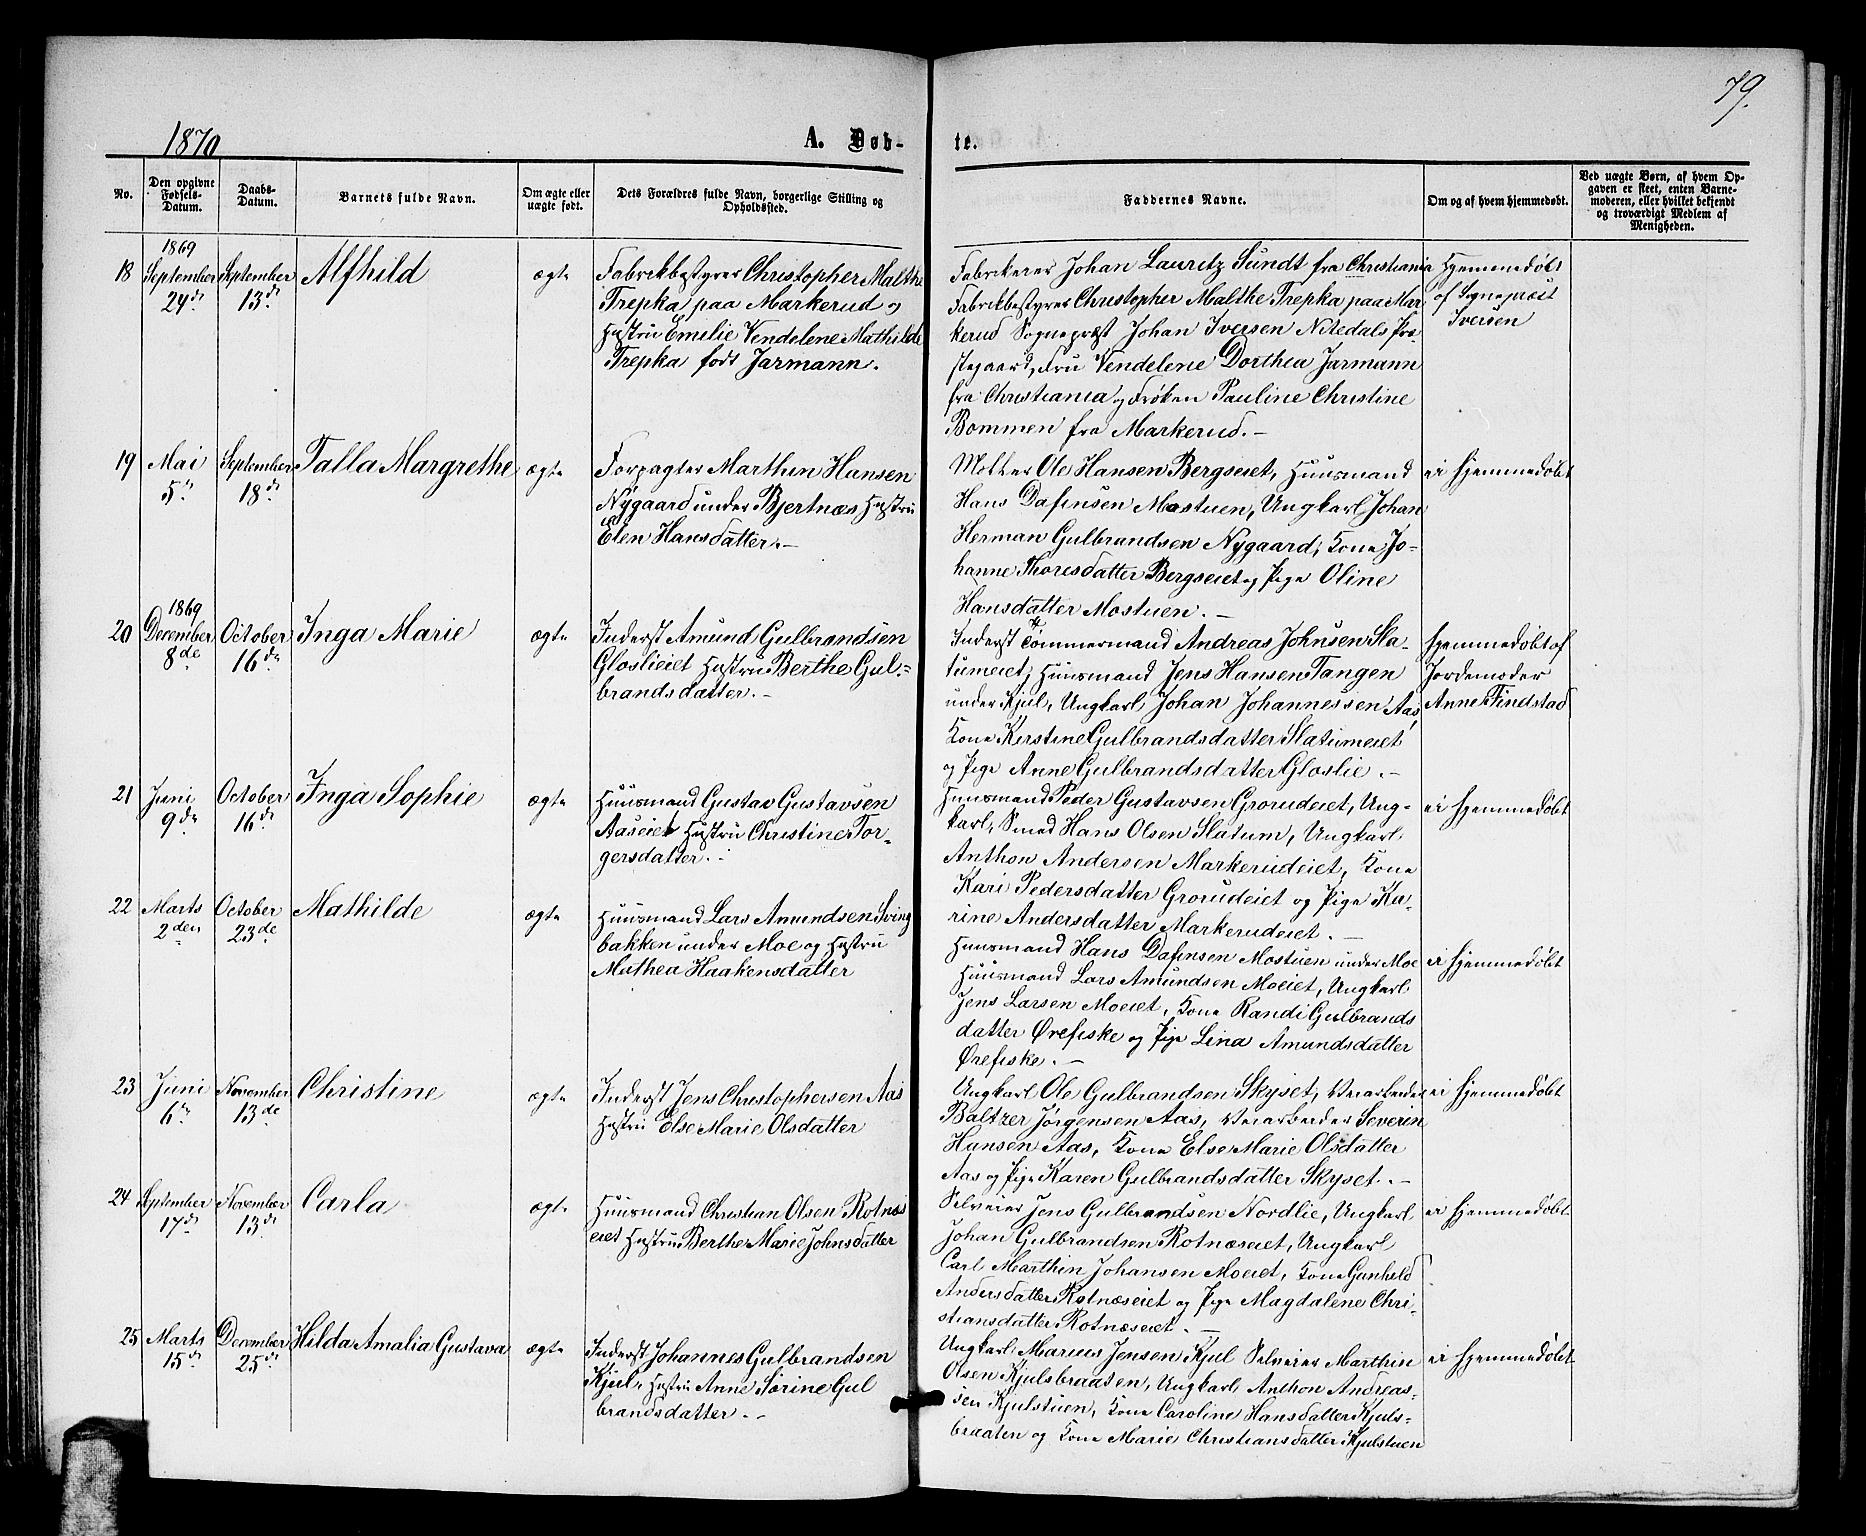 79.
1870
A. Døb-
te.
No.
Den opgivne Fødsels-Datum.
Daabs-Datum.
Barnets fulde Navn.
Om ægte eller uægte født.
Dets Forældres fulde Navn, borgerlige Stilling og Opholdssted.
Faddernes Navne.
Om og af hvem hjemmedøbt.
Ved uægte Børn, af hvem Op-
gaven er skeet, enten Barne-
moderen, eller hvilket bekjendt
og troværdigt Medlem af
Menigheden.
18
1869
September
24de
September
13de
Alfhild
ægte
Fabrikbestyrer Christopher Malthe
Trepka paa Markerud og
Hustru Emilie Vendelene Mathilde
Trepka født Jarmann.
Fabrikeier Johan Lauritz Sundt fra Christiania
Fabrikbestyrer Christopher Malthe Trepka paa Mar-
kerud Sognepræst Johan Iversen Nitedals Præ-
stegaard, Fru Vendelene Dorthea Jarmann
fra Christiania og Frøken Pauline Christine
Bommen fra Markerud.-
Hjemmedøbt
af Sognepræst
Iversen
19
Mai
5te
September
18de
Talla Margrethe
ægte
Forpagter Marthin Hansen
Nygaard under Bjertnæs Hustru
Elen Hansdatter.-
Møller Ole Hansen Bergseiet, Huusmand
Hans Dafinsen Mostuen, Ungkarl Johan
Herman Gulbrandsen Nygaard, Kone Jo-
hanne Thoresdatter Bergseiet og Pige Oline
Hansdatter Mostuen.-
ei hjemmedøbt
20
1869
December
8de
October
16de
Inga Marie
ægte
Inderst Amund Gulbrandsen
Gloslieiet Hustru Berthe Gul-
brandsdatter.-
Inderst Tømmermand Andreas Johnsen Sla-
tumeiet, Huusmand Jens Hansen Tangen
under Kjul, Ungkarl Johan Johannessen Aas,
Kone Kirstine Gulbrandsdatter Slatumeiet
og Pige Anne Gulbrandsdatter Gloslie.-
Hjemmedøbt af
Jordemoder
Anne Findstad
21
Juni
9de
October
16de
Inga Sophie
ægte
Huusmand Gustav Gustavsen
Aaseiet Hustru Christine Tor-
gersdatter.-
Huusmand Peder Gustavsen Grorudeiet, Ung-
karl, Smed Hans Olsen Slatum, Ungkarl
Anthon Andersen Markerudeiet, Kone
Kari Pedersdatter Grorudeiet og Pige Ka-
rine Andersdatter Markerudeiet.-
ei hjemmedøbt
22
Marts
2den
October
23de
Mathilde
ægte
Huusmand Lars Amundsen Sving
bakken under Moe og Hustru
Mathea Haakensdatter
Huusmand Hans Dafinsen Mostuen under Moe
Huusmand Lars Amundsen Moeiet, Ungkarl
Jens Larsen Moeiet, Kone Randi Gulbrands
datter Ørefiske og Pige Lina Amundsdatter
Ørefiske.-
ei hjemmedøbt
23
Juni
6te
November
13de
Christine
ægte
Inderst Jens Christophersen Aas
Hustru Else Marie Olsdatter
Ungkarl Ole Gulbrandsen Skyset, Veiarbeider
Baltzer Jørgensen Aas, Veiarbeider Severin
Hansen Aas, Kone Else Marie Olsdatter
Aas og Pige Karen Gulbrandsdatter Skyset.-
ei hjemmedøbt
24
September
17de
November
13de
Carla
ægte
Huusmand Christian Olsen Rotnæs
eiet Hustru Berthe Marie Johnsdatter
Selveier Jens Gulbrandsen Nordlie, Ungkarl
Johan Gulbrandsen Rotnæseiet, Ungkarl
Carl Marthin Johansen Moeiet, Kone Gunhild
Andersdatter Rotnæseiet og Pige Magdalene Chri-
stiansdatter Rotnæseiet.-
ei hjemmedøbt
25
Marts
15de
December
25de
Hilda Amalia Gustava
ægte
Inderst Johannes Gulbrandsen
Kjul, Hustru Anne Sørine Gul
brandsdatter.-
Ungkarl Marius Jensen Kjul Selveier Marthin
Olsen Kjulsbraaten, Ungkarl Anthon Andreas-
sen Kjulstuen, Kone Caroline Hansdatter Kjuls-
braaten og Kone Marie Christiansdatter Kjulstuen
ei hjemmedøbt